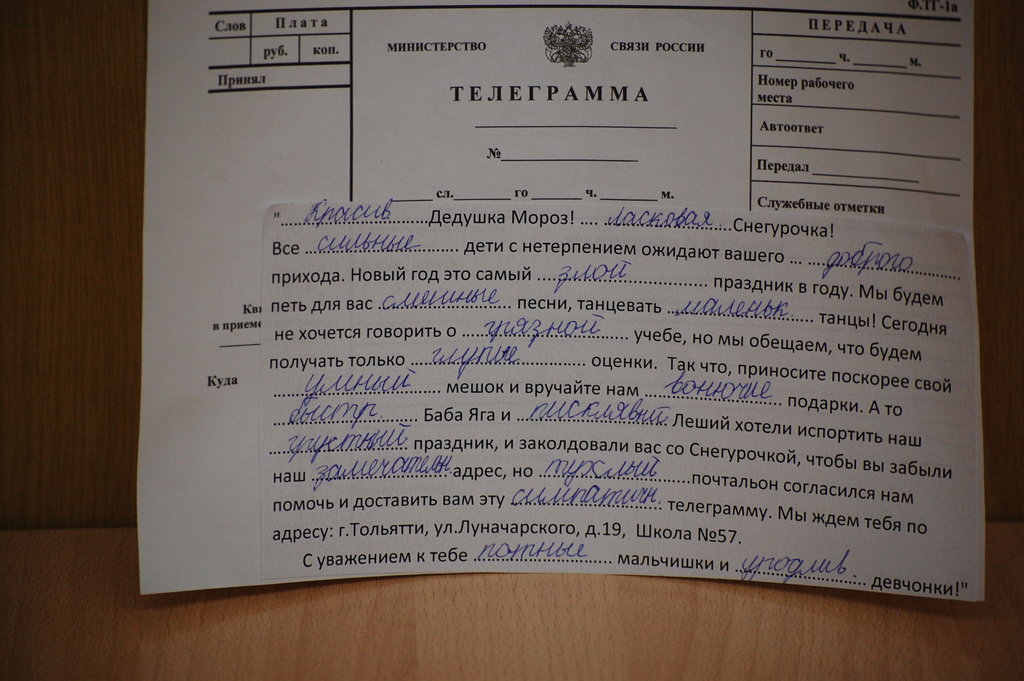 Ф.ТГ-1а
Слов Плата
руб. коп.
Принял
МИНИСТЕРСТВО СВЯЗИ РОССИИ
ТЕЛЕГРАММА
№
сл. го ч. м.
ПЕРЕДАЧА
го ч. м.
Номер рабочего
места
Автоответ
Передал
Служебные отметки
Кви
в приеме
Куда
"....Красив.......Дедушка Мороз! .... ласковая...Снегурочка!
Все ..сильные........ дети с нетерпением ожидают вашего ... ...доброго.......
прихода. Новый год это самый ....злой................ праздник в году. Мы будем
петь для вас смешные.. песни, танцевать ..маленьк..... танцы! Сегодня
не хочется говорить о ....грязной...... учебе, но мы обещаем, что будем
получать только ...глупые............ оценки. Так что, приносите поскорее свой
......умный...... мешок и вручайте нам ..вонючие.. подарки. А то
...быстр......... Баба Яга и ..писклявый.Леший хотели испортить наш
...грустный праздник, и заколдовали вас со Снегурочкой, чтобы вы забыли
наш замечательн.адрес, но ..тухлый......почтальон согласился нам
помочь и доставить вам эту симпатичн. телеграмму. Мы ждем тебя по
адресу: г.Тольятти, ул.Луначарского, д.19, Школа №57.
С уважением к тебе .потные...... мальчишки и .уродлив.... девчонки!"